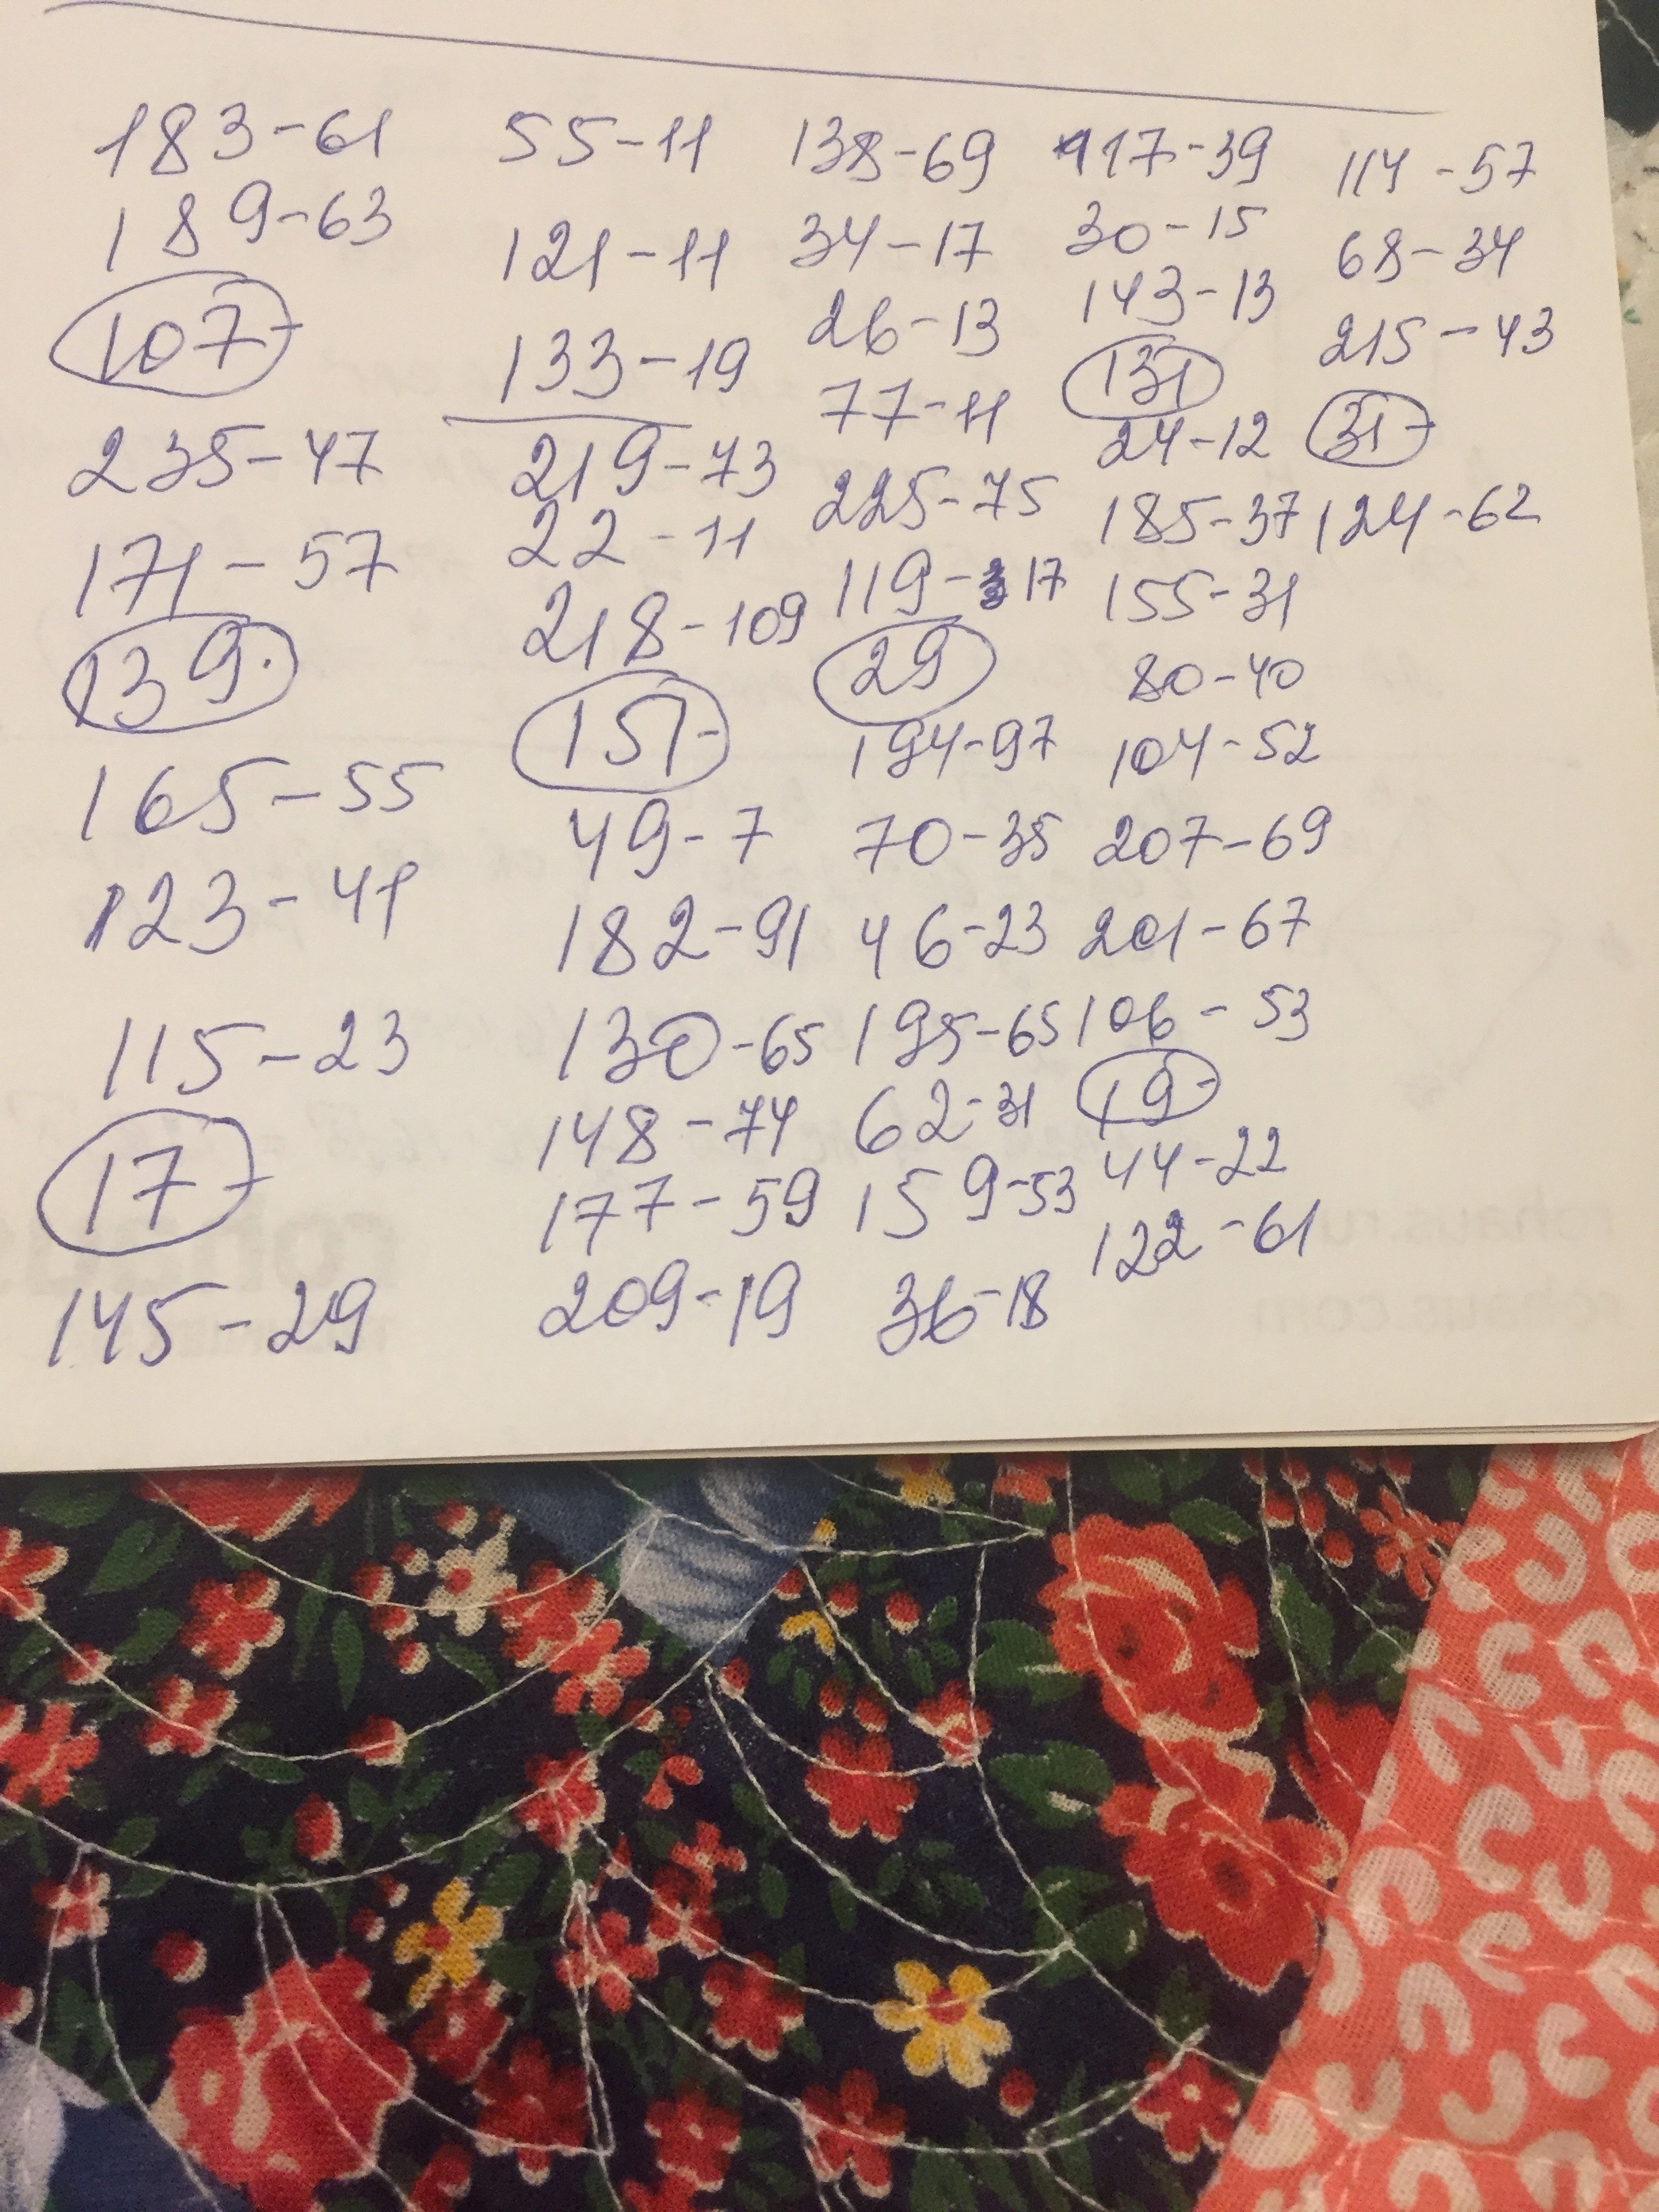 183-61
189-63
107-
235-47
171-57
139.
165-55
123-41
115-23
17-
145-29
55-11
121-11
133-19
219-73
22-11
218-109
151-
49-7
182-91
130-65
148-74
177-59
209-19
138-69
34-17
26-13
77-11
225-75
119-17
29
194-97
70-35
46-23
195-65
62-31
159-53
36-18
117-39
30-15
143-13
131
24-12
185-37
155-31
80-40
104-52
207-69
201-67
106-53
19-
44-22
122-61
114-57
68-34
215-43
31-
124-62